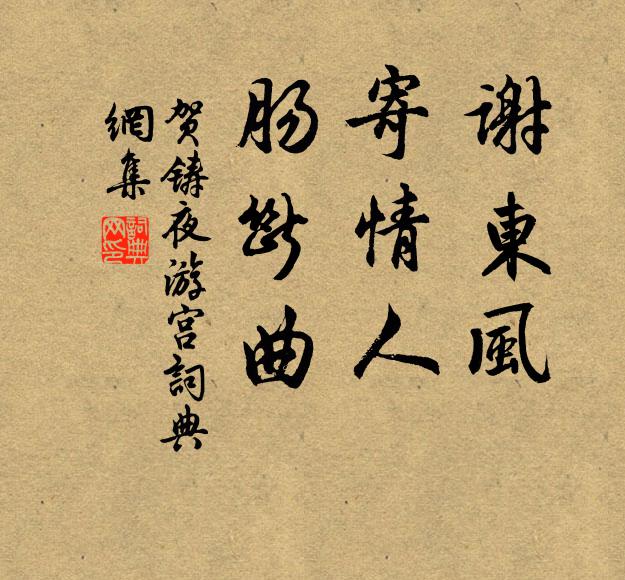 謝東風
寄情人
腸斷曲
贺鑄夜游宫詞典
網集
詞典
网印